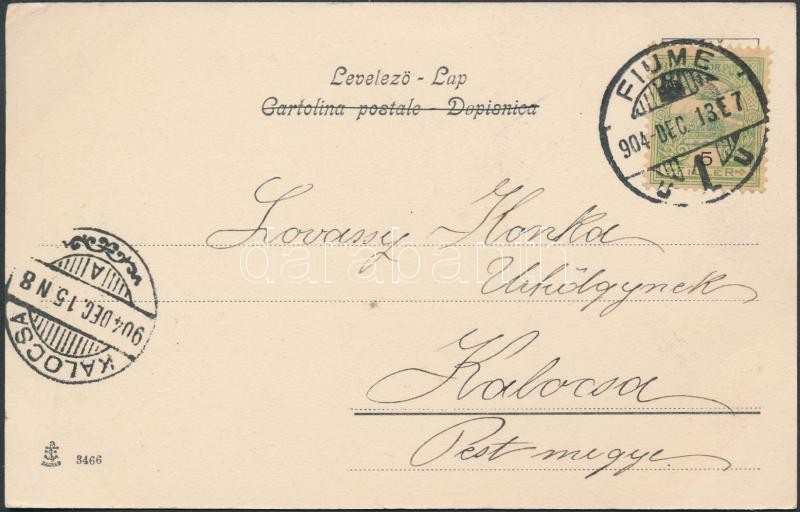 Levelező - Lap
Cartolina postale - Dopisnica
FIUME
904-DEC. 13 E 7
1
5
Lovassy Ilonka
Urhölgynek
Kalocsa
Pest megye
KALOCSA
904 DEC. 15 N 8
A
3466
darabanth